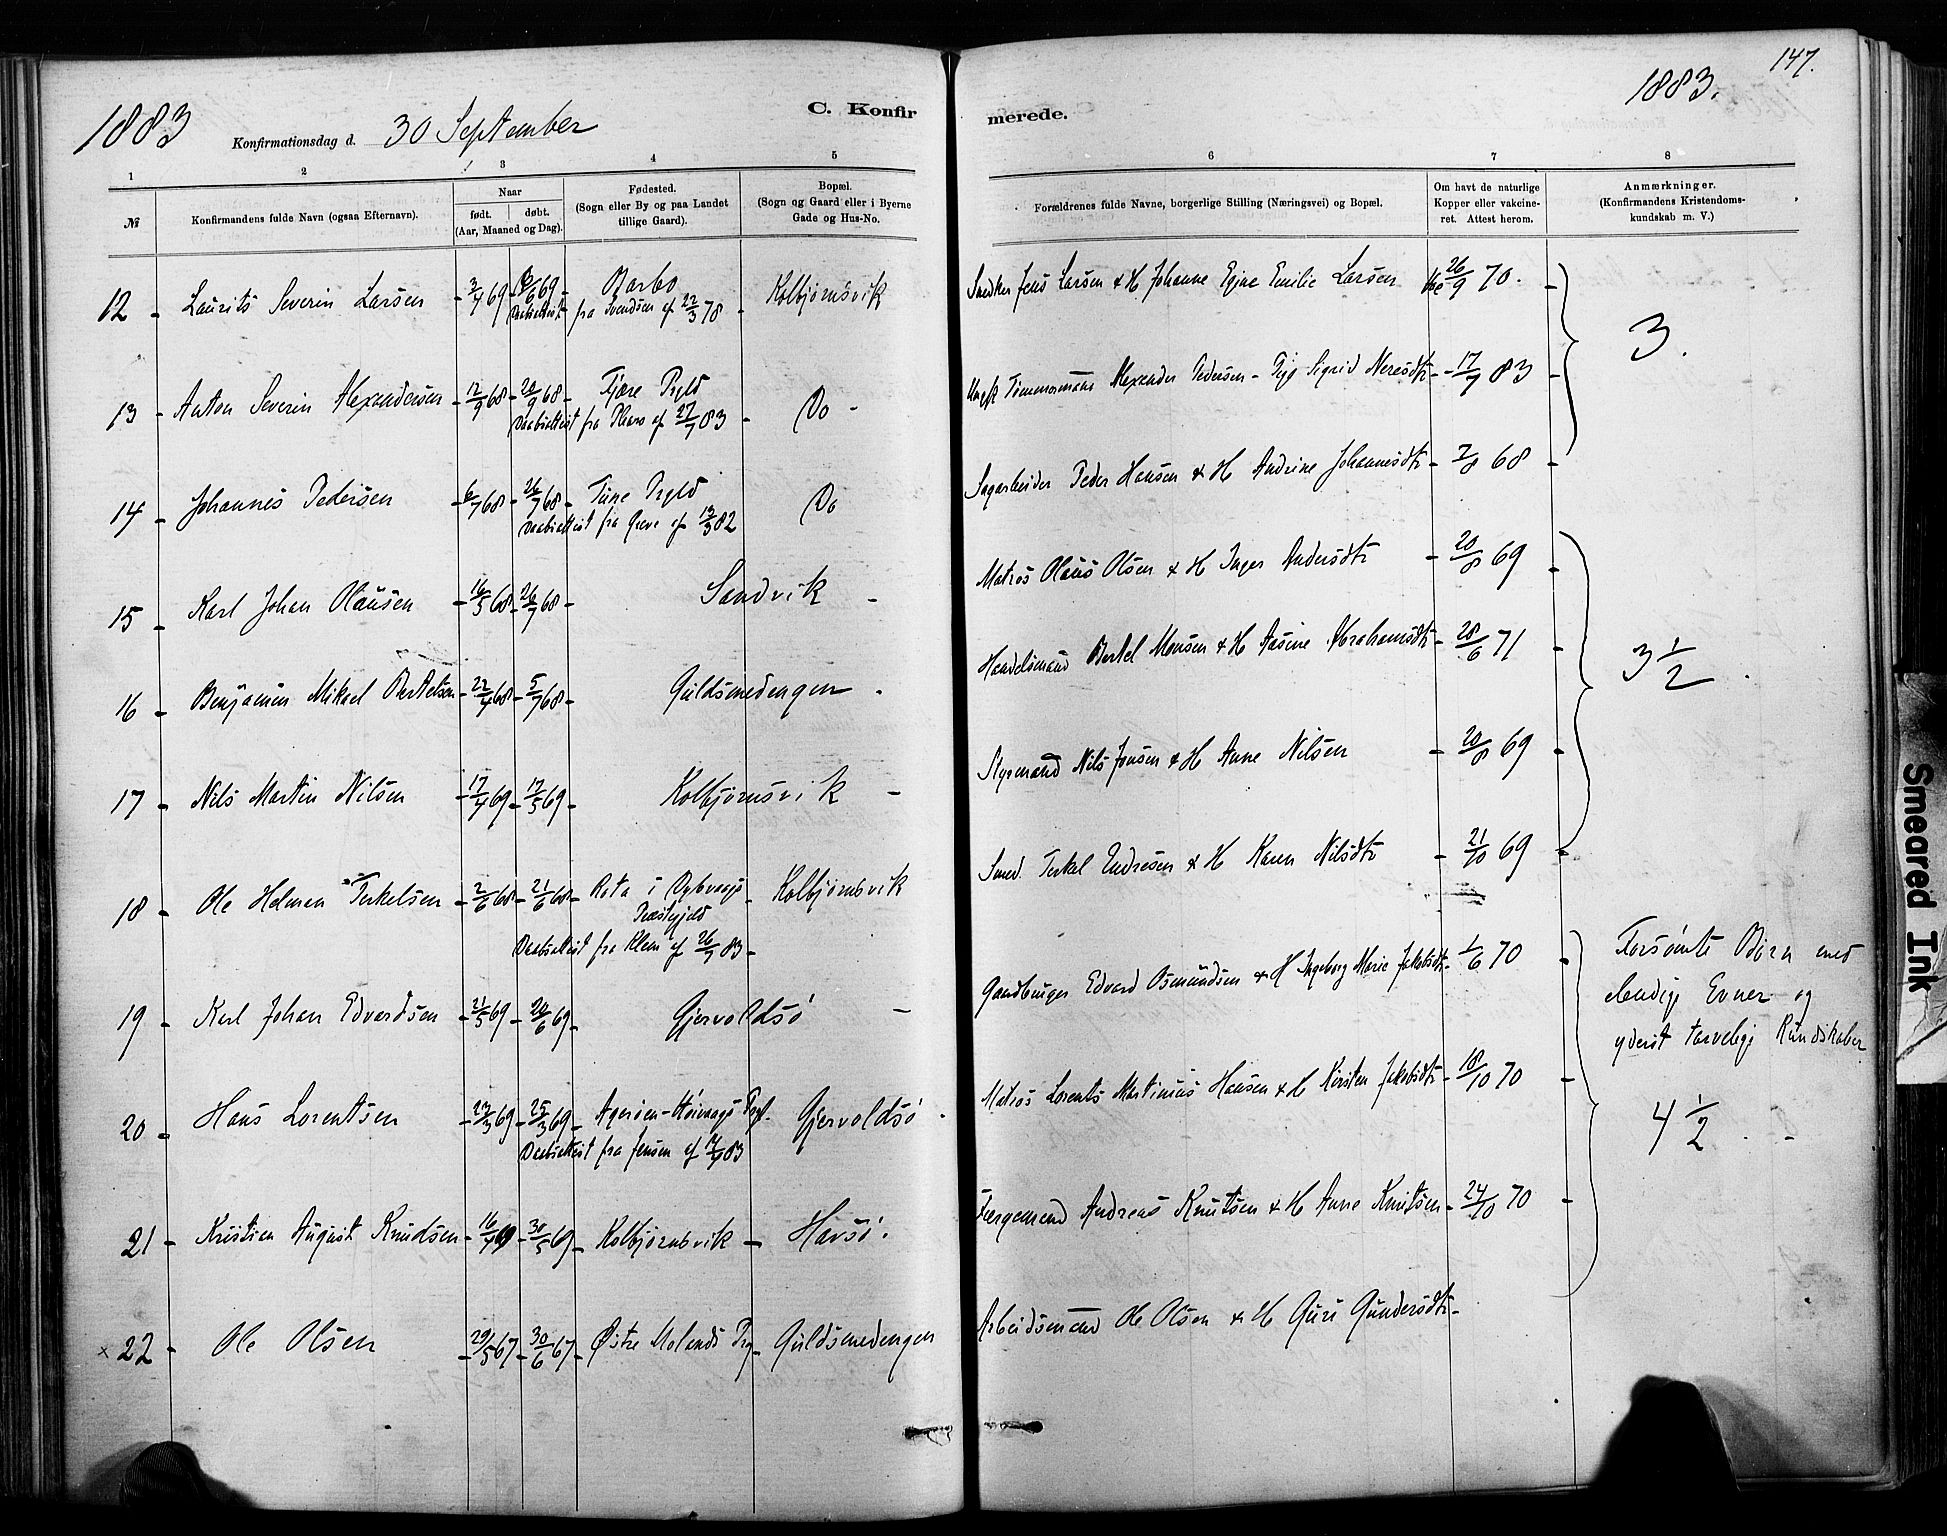 147.
1883
1883.
C. Konfirmerede.
Konfirmationsdag d. 30 September
1 2 3 4 5 6 7 8
№
Konfirmandens fulde Navn (ogsaa Efternavn).
Naar
født. døbt.
(Aar, Maaned og Dag).
Fødested.
(Sogn eller By og paa Landet
tillige Gaard).
Bopæl.
(Sogn og Gaard eller i Byerne
Gade og Hus-No.
Forældrenes fulde Navne, borgerlige Stilling (Næringsvei) og Bopæl.
Om havt de naturlige
Kopper eller vakcine-
ret. Attest herom.
Anmærkninger.
(Konfirmandens Kristendoms-
kundskab m. V.)
12 - Laurits Severin Larsen - 3/4 69 - 6/6 69 - Barbo Kolbjørnsvik Snedker Jens Larsen & H. Johanne Emilie Larsen Vac 26/9 70. -
Daabsattest fra Svendsen af 22/3 78
3.
13 - Anton Severin Alexandersen - 12/9 68 - 20/9 68 - Fjære Prgld Do - Tømmermand Alexander Pedersen - Sigrid - 17/7 83 -
Daabsattest fra af 27/7 83 -
14 - Johannes Pedersen - 6/7 68 - 26/7 68 - Prgld Do Sagarbeider Peder Hansen & H Andrine Johannesdtr - 7/8 68 -
Daabsattest fra af 13/3 82
15 - Karl Johan Olausen - 16/5 68 - 26/7 68 - Sandvik - Matros Olaus Olsen & H Inger Andersdtr - 20/8 69 -
16 - Benjamin Mikael Bertelsen - 22/4 68 - 5/7 68 - Guldsmedengen . Handelsmand Bertel Monsen & H Aasine Abrahamsdtr - 28/6 71 -
3 1/2 .
17 - Nils Martin Nilsen - 17/4 69 - 17/5 69 - Kolbjørnsvik - Styrmand Nils Jonsen & H Anne Nilsen - 20/8 69 -
18 - Ole Helmen Terkelsen - 2/6 68 - 21/6 68 - Rota i Dybvaags - Kolbjørnsvik Smed Terkel Endresen & H Karen Nilsdtr - 21/10 69 -
Præstgjeld
Daabsattest fra Klem af 26/7 83 -
19 - Karl Johan Edvardsen - 21/5 69 - 20/6 69 - Gjervoldsø - Gaardbruger Edvard Osmundsen & H Ingeborg Marie Jakobsdtr - 1/6 70 -
Forsømte Børn med
elendige Evner og
yderst tarvelige Kundskaber
4 1/2 . -
20 - Hans Lorentsen - 23/3 69 - 25/3 69 - Agerøen - Høivaags Prgl. Gjervoldsø . Matros Lorents Martinius Hansen & H Kirsten Jakobsdtr - 18/10 70 -
Daabsattest fra Jensen af 17/9 83
21 - Kristian August Knudsen - 16/4 69 - 30/5 69 - Kolbjørnsvik - Havsø . Færgemand Andreas Knutsen & H Anne Knutsen - 24/10 70 -
x 22 - Ole Olsen - 29/5 67 - 30/6 67 - Østre Molands Prg - Guldsmedengen Arbeidsmand Ole Olsen & H Guri Gundersdtr -
Smeared Ink